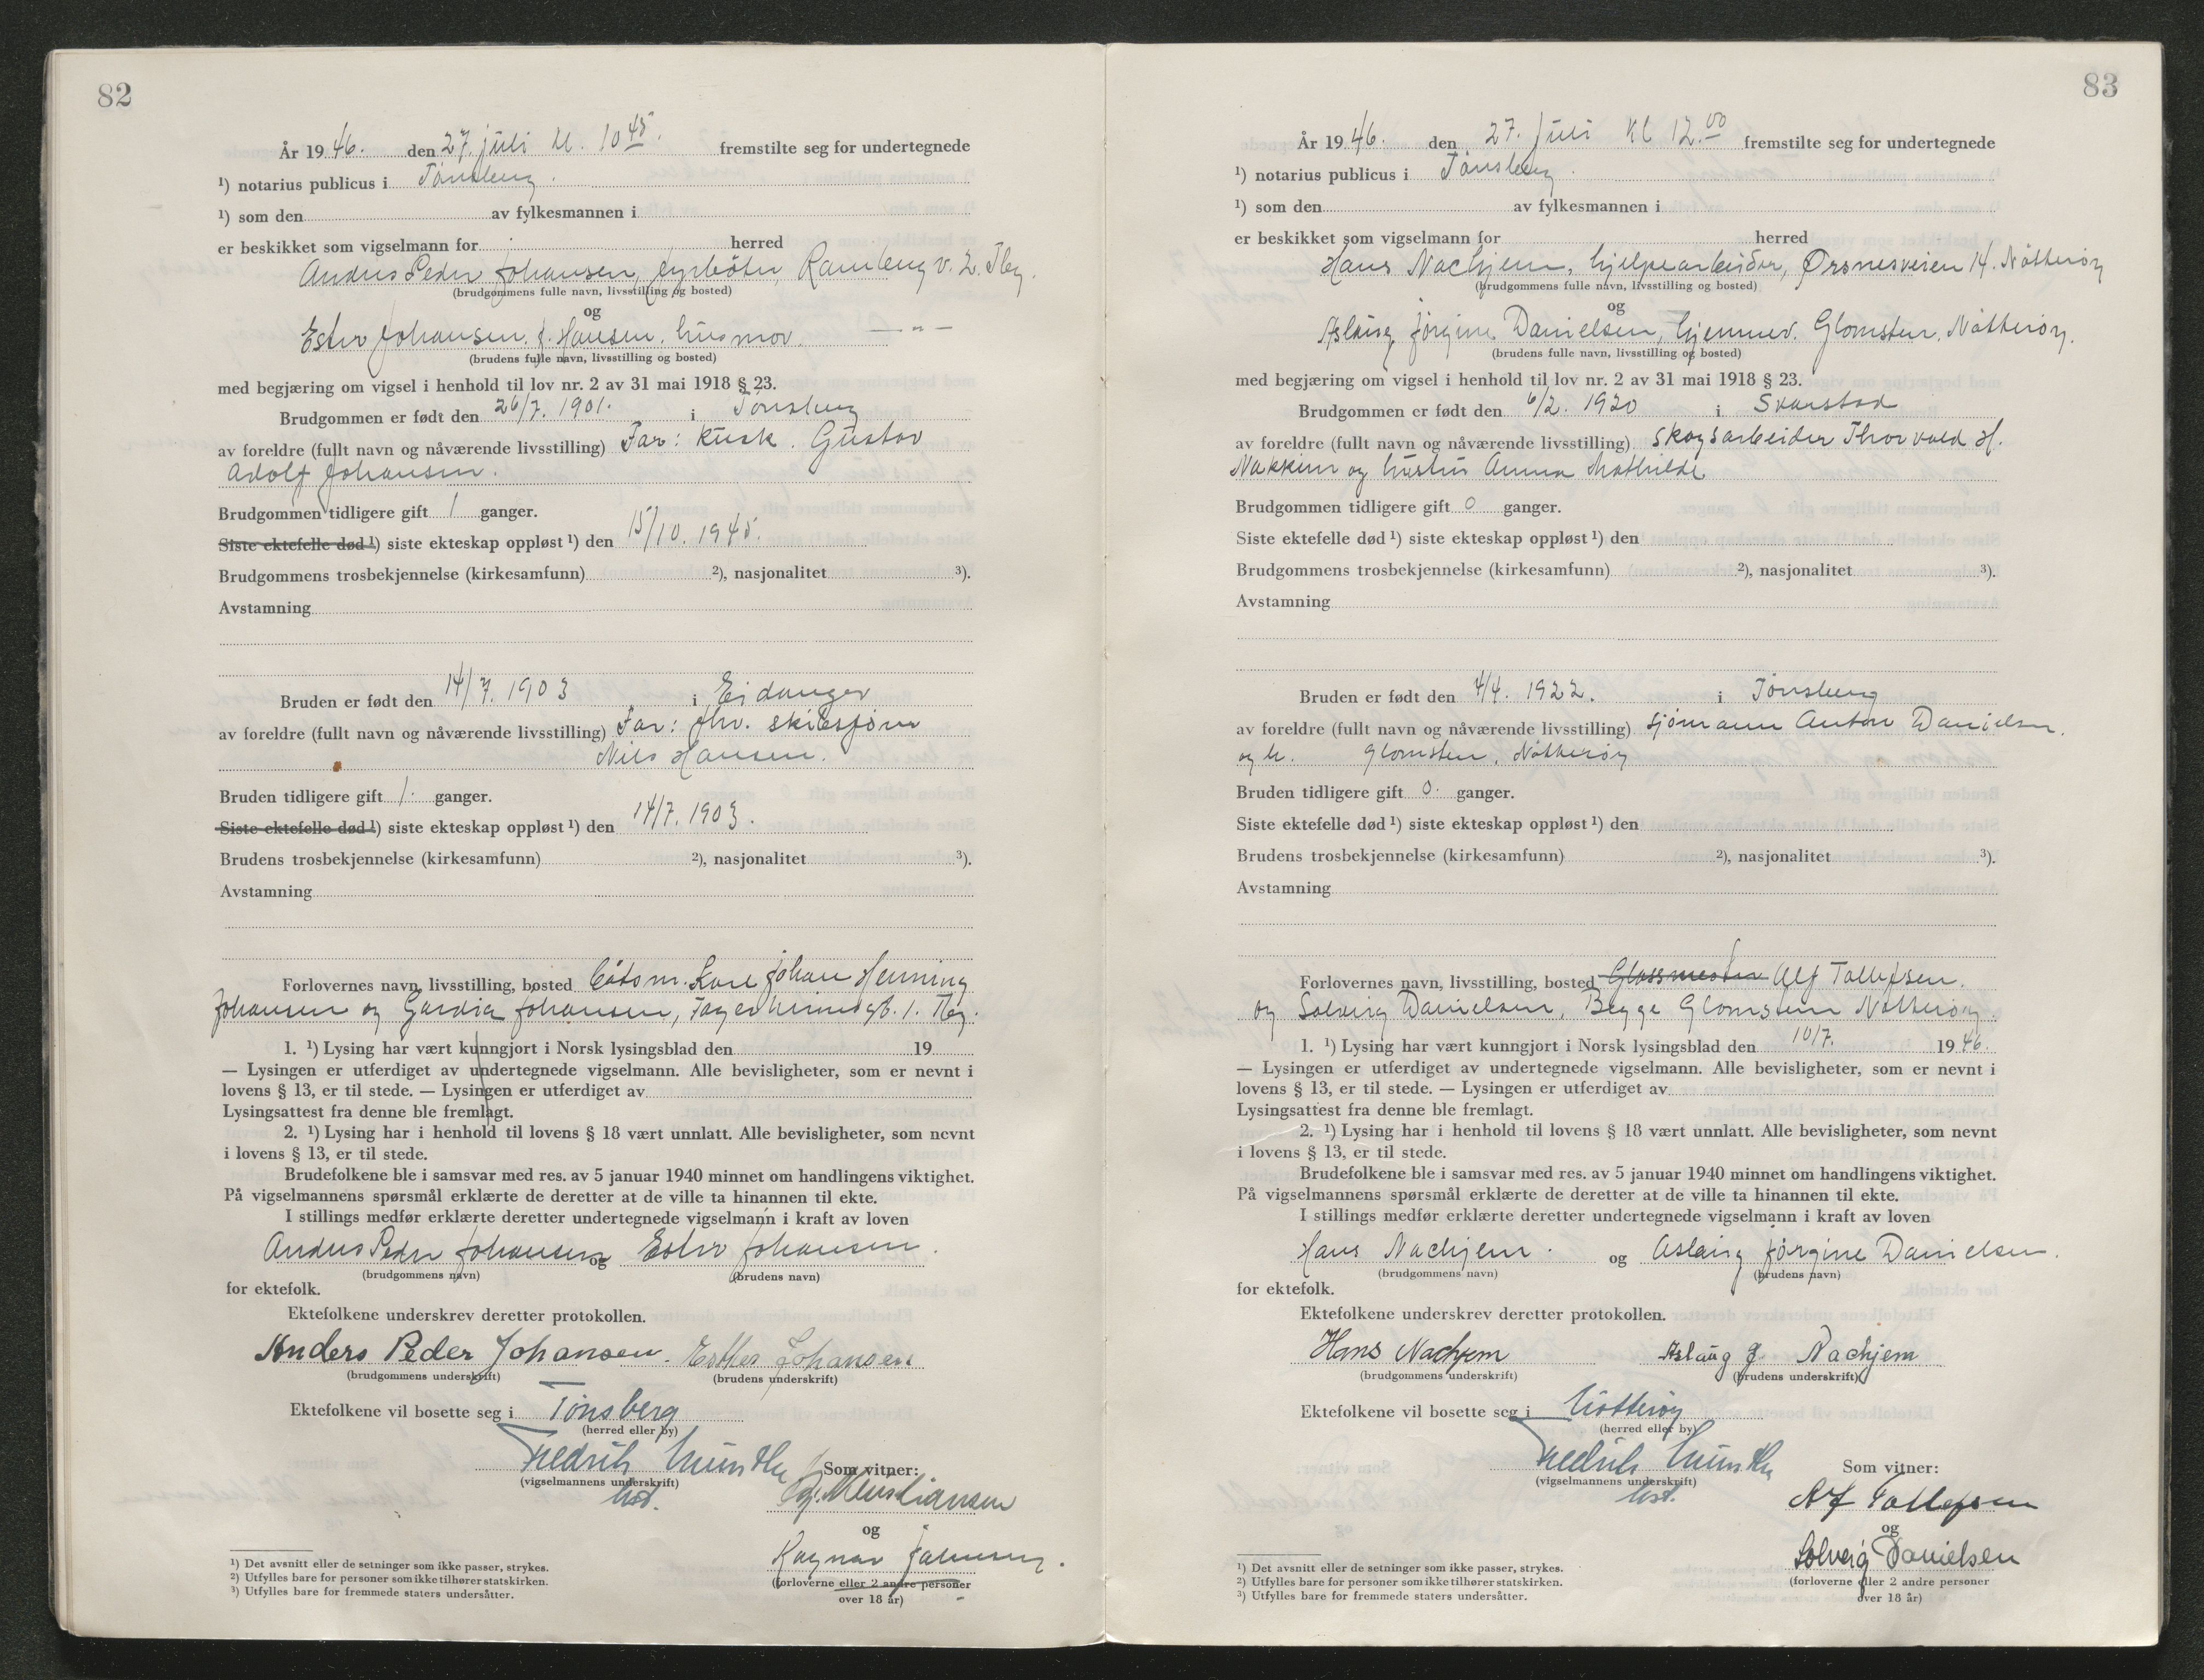 82
År 1946. den 27. juli kl. 10 45. fremstilte seg for undertegnede
¹) notarius publicus i Tønsberg.
¹) som den av fylkesmannen i
er beskikket som vigselmann for herred
Anders Peder Johansen, fyrbøter, Ramberg v. 2. Tbg.
(brudgommens fulle navn, livsstilling og bosted)
og
Ester Johansen f. Hansen, husmor. — " —
(brudens fulle navn, livsstilling og bosted)
med begjæring om vigsel i henhold til lov nr. 2 av 31 mai 1918 § 23.
Brudgommen er født den 26/7. 1901. i Tønsberg
av foreldre (fullt navn og nåværende livsstilling) Far: kusk. Gustav
Adolf Johansen.
Brudgommen tidligere gift 1 ganger.
Siste ektefelle død ¹) siste ekteskap oppløst ¹) den 15/10. 1945.
Brudgommens trosbekjennelse (kirkesamfunn) ²), nasjonalitet ³).
Avstamning
Bruden er født den 14/7. 1903 i Eidanger
av foreldre (fullt navn og nåværende livsstilling) Far: fhv. skibsfører
Nils Hansen.
Bruden tidligere gift 1. ganger.
Siste ektefelle død ¹) siste ekteskap oppløst ¹) den 14/7. 1903.
Brudens trosbekjennelse (kirkesamfunn) ²), nasjonalitet ³).
Avstamning
Forlovernes navn, livsstilling, bosted Båtsm. Karl Johan Henning
Johansen og Johansen, 1. Tbg.
1. ¹) Lysing har vært kunngjort i Norsk lysingsblad den 19
— Lysingen er utferdiget av undertegnede vigselmann. Alle bevisligheter, som er nevnt i
lovens § 13, er til stede. — Lysingen er utferdiget av
Lysingsattest fra denne ble fremlagt.
2. ¹) Lysing har i henhold til lovens § 18 vært unnlatt. Alle bevisligheter, som nevnt
i lovens § 13, er til stede.
Brudefolkene ble i samsvar med res. av 5 januar 1940 minnet om handlingens viktighet.
På vigselmannens spørsmål erklærte de deretter at de ville ta hinannen til ekte.
I stillings medfør erklærte deretter undertegnede vigselmann i kraft av loven
Anders Peder Johansen og Ester Johansen.
(brudgommens navn) (brudens navn)
for ektefolk.
Ektefolkene underskrev deretter protokollen.
Anders Peder Johansen. Esther Johansen
(brudgommens underskrift) (brudens underskrift)
Ektefolkene vil bosette seg i Tønsberg
(herred eller by)
Fredrik Münster Som vitner:
(vigselmannens underskrift)
Kristiansen
og
Ragnar
(forloverne eller 2 andre personer
over 18 år)
¹) Det avsnitt eller de setninger som ikke passer, strykes.
²) Utfylles bare for personer som ikke tilhører statskirken.
³) Utfylles bare for fremmede staters undersåtter.
83
År 1946. den 27. juli kl 12.00 fremstilte seg for undertegnede
¹) notarius publicus i Tønsberg.
¹) som den av fylkesmannen i
er beskikket som vigselmann for herred
Hans Nachjem, hjelpearbeider, Ørsnesveien 14. Nøtterøy
(brudgommens fulle navn, livsstilling og bosted)
og
Aslaug Jørgine Danielsen, hjemmev. Glomsten, Nøtterøy.
(brudens fulle navn, livsstilling og bosted)
med begjæring om vigsel i henhold til lov nr. 2 av 31 mai 1918 § 23.
Brudgommen er født den 6/2. 1920 i Svarstad
av foreldre (fullt navn og nåværende livsstilling) skogsarbeider Thorvald H.
Nakkim og hustru Anna Mathilde
Brudgommen tidligere gift 0 ganger.
Siste ektefelle død ¹) siste ekteskap oppløst ¹) den
Brudgommens trosbekjennelse (kirkesamfunn) ²), nasjonalitet ³).
Avstamning
Bruden er født den 4/4. 1922. i Tønsberg
av foreldre (fullt navn og nåværende livsstilling) sjømann Anton Danielsen.
og h. Glomsten, Nøtterøy
Bruden tidligere gift 0. ganger.
Siste ektefelle død ¹) siste ekteskap oppløst ¹) den
Brudens trosbekjennelse (kirkesamfunn) ²), nasjonalitet ³).
Avstamning
Forlovernes navn, livsstilling, bosted Glassmester Alf Tollefsen.
og Solveig Danielsen, Begge Glomstein Nøtterøy.
1. ¹) Lysing har vært kunngjort i Norsk lysingsblad den 10/7. 1946.
— Lysingen er utferdiget av undertegnede vigselmann. Alle bevisligheter, som er nevnt i
lovens § 13, er til stede. — Lysingen er utferdiget av
Lysingsattest fra denne ble fremlagt.
2. ¹) Lysing har i henhold til lovens § 18 vært unnlatt. Alle bevisligheter, som nevnt
i lovens § 13, er til stede.
Brudefolkene ble i samsvar med res. av 5 januar 1940 minnet om handlingens viktighet.
På vigselmannens spørsmål erklærte de deretter at de ville ta hinannen til ekte.
I stillings medfør erklærte deretter undertegnede vigselmann i kraft av loven
Hans Nachjem. og Aslaug Jørgine Danielsen.
(brudgommens navn) (brudens navn)
for ektefolk.
Ektefolkene underskrev deretter protokollen.
Hans Nachjem Aslaug J. Nachjem
(brudgommens underskrift) (brudens underskrift)
Ektefolkene vil bosette seg i Nøtterøy
(herred eller by)
Fredrik Münster Som vitner:
(vigselmannens underskrift)
Alf Tollefsen
og
Solveig Danielsen
(forloverne eller 2 andre personer
over 18 år)
¹) Det avsnitt eller de setninger som ikke passer, strykes.
²) Utfylles bare for personer som ikke tilhører statskirken.
³) Utfylles bare for fremmede staters undersåtter.